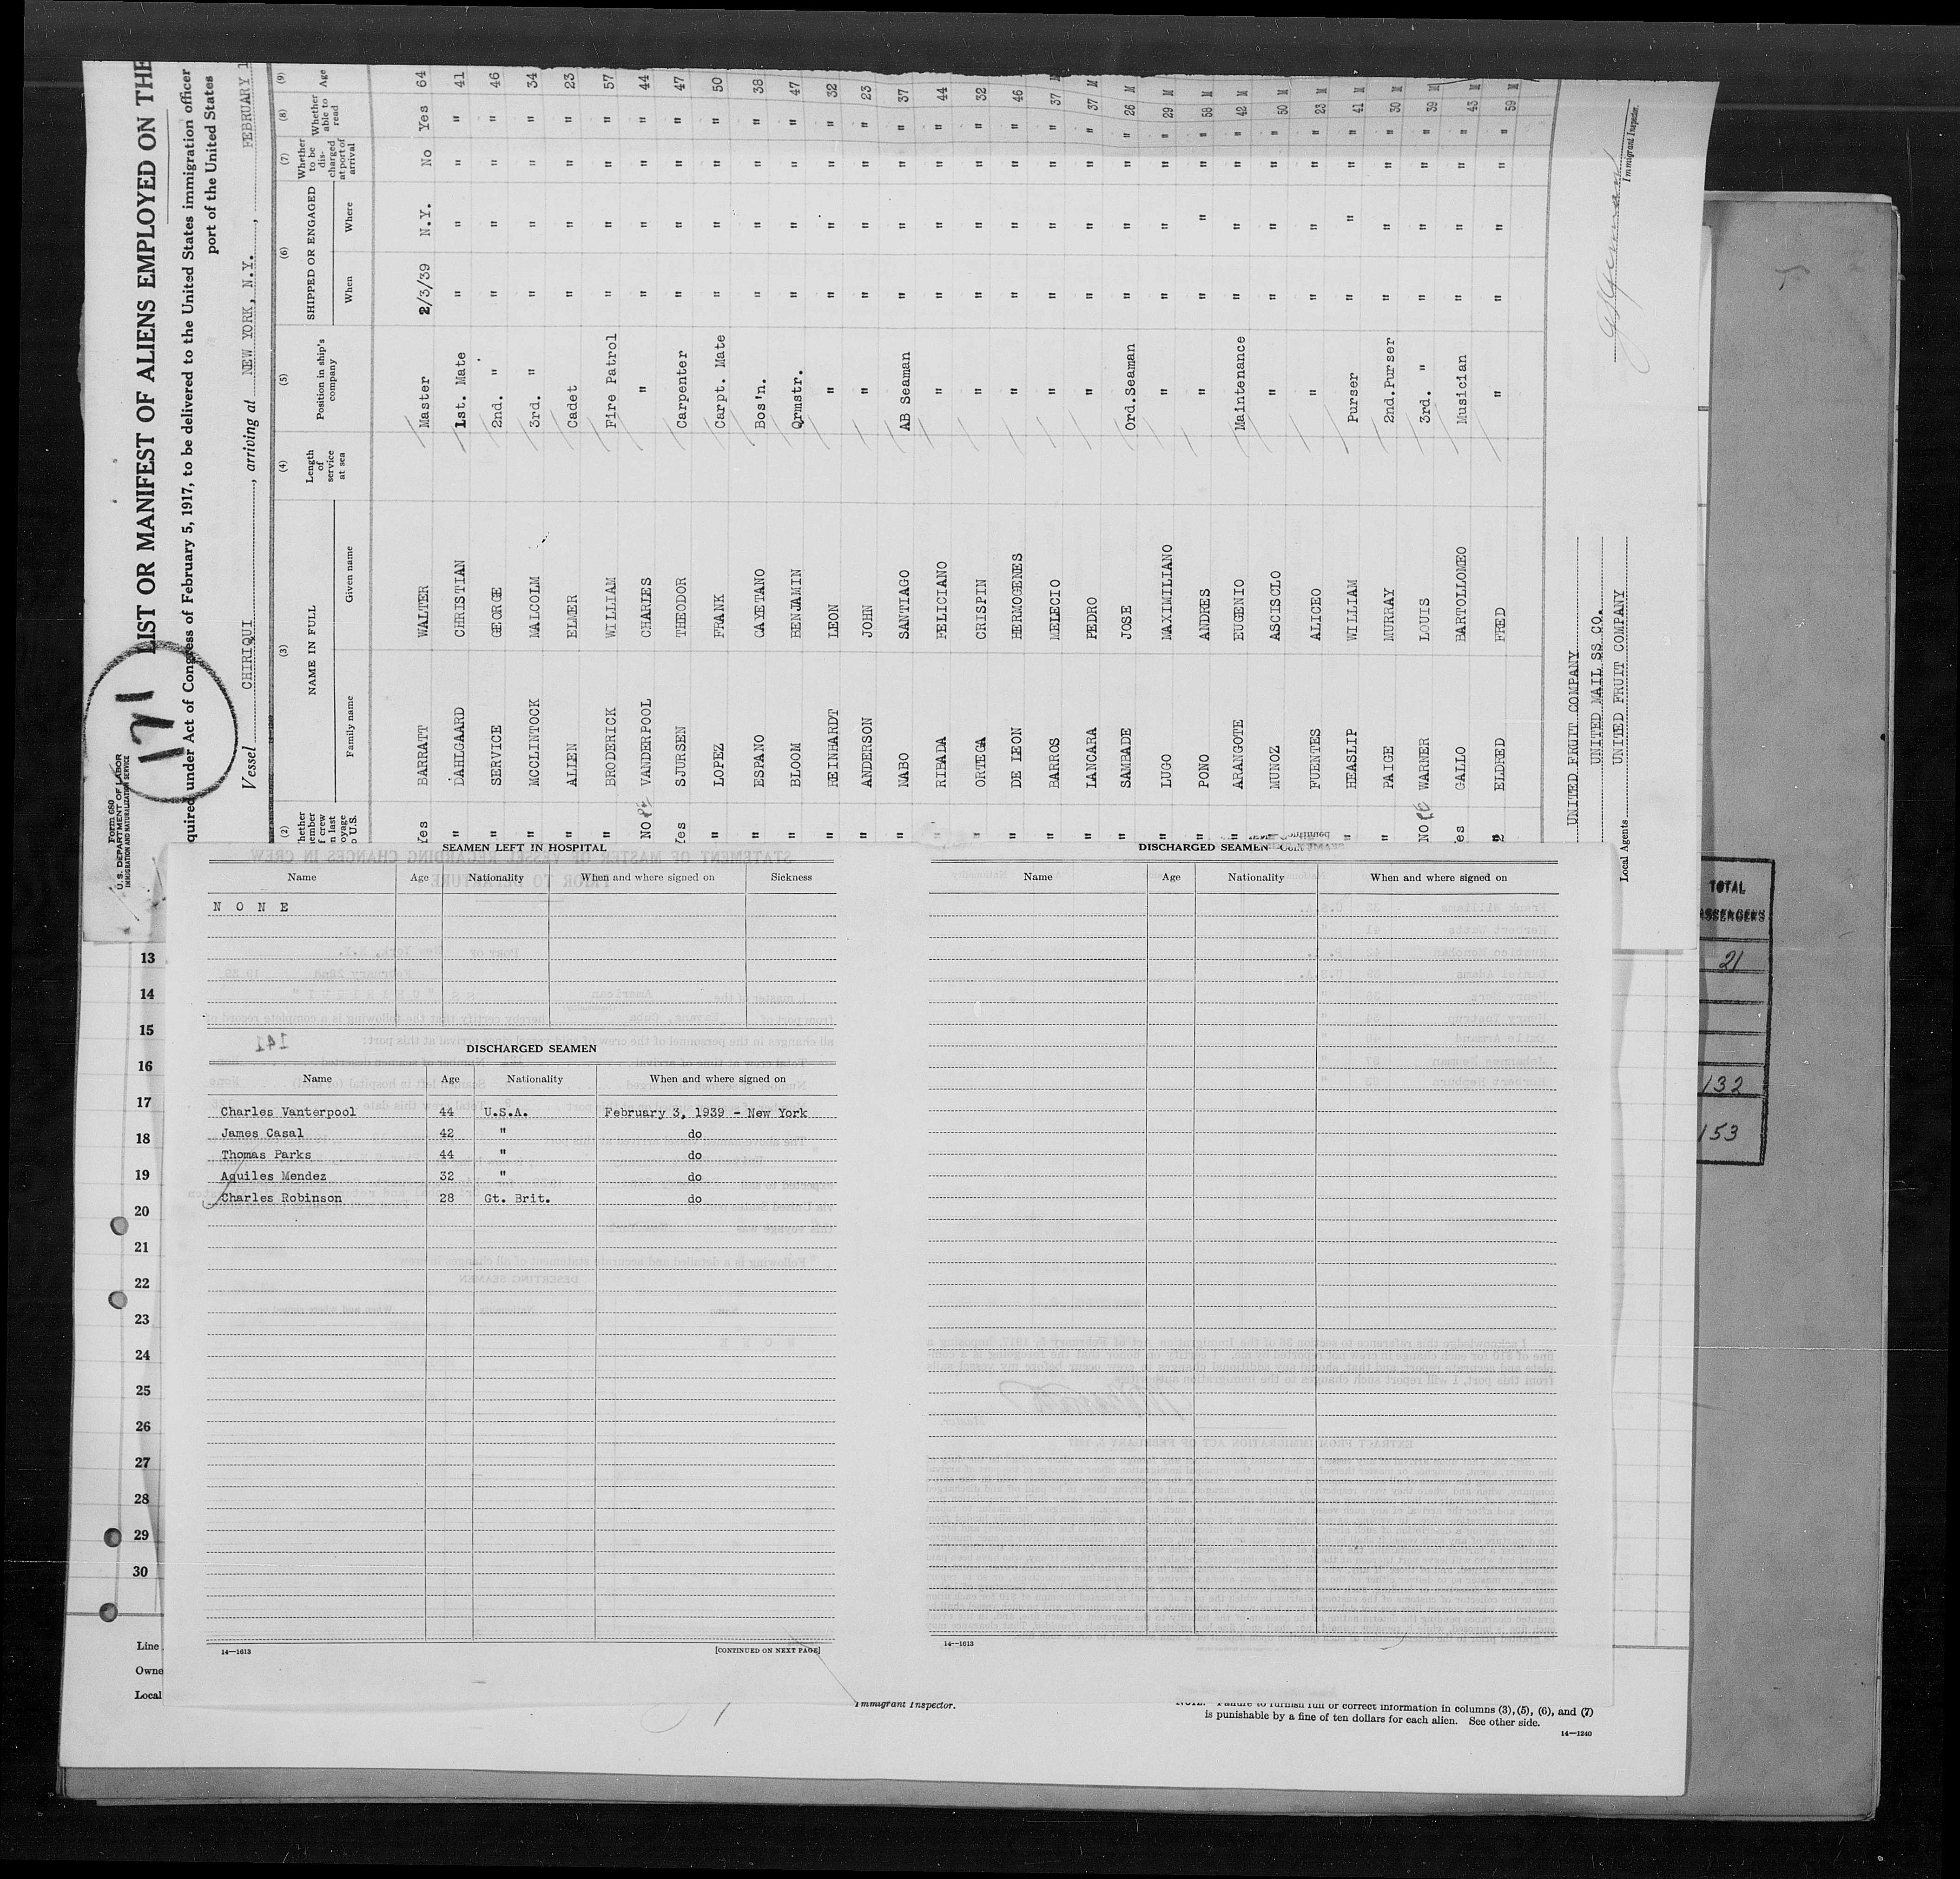 Form 680
U. S. DEPARTMENT OF LABOR
IMMIGRATION AND NATURALIZATION SERVICE
171
LIST OR MANIFEST OF ALIENS EMPLOYED ON THE
quired under Act of Congress of February 5, 1917, to be delivered to the United States immigration officer
port of the United States
Vessel CHIRIQUI, arriving at NEW YORK, N.Y., FEBRUARY 1
(2) (3) (4) (5) (6) (7) (8) (9)
NAME IN FULL
Family name Given name
Length of service at sea
Position in ship's company
SHIPPED OR ENGAGED
When Where
Whether to be discharged at port of arrival
Whether able to read
Age
Yes BARRATT WALTER Master 2/3/39 N.Y. No Yes 64
" DAHLGAARD CHRISTIAN 1st. Mate " " " " 41
" SERVICE GEORGE 2nd. " " " " " 46
" MCCLINTOCK MALCOLM 3rd. " " " " " 34
" ALLEN ELMER Cadet " " " " 23
" BRODERICK WILLIAM Fire Patrol " " " " 57
NO VANDERPOOL CHARLES " " " " " 44
Yes SJURSEN THEODOR Carpenter " " " " 47
" LOPEZ FRANK Carpt. Mate " " " " 50
" ESPANO CAYETANO Bos'n. " " " " 38
" BLOOM BENJAMIN Qrmstr. " " " " 47
" REINHARDT LEON " " " " " 32
" ANDERSON JOHN " " " " " 23
" NABO SANTIAGO AB Seaman " " " " 37
" RIBADA FELICIANO " " " " " 44
" ORTEGA CRISPIN " " " " " 32
" DE LEON HERMOGENES " " " " " 46
" BARROS MELECIO " " " " " 37 M
" LANCARA PEDRO " " " " " 37 M
" SAMBADE JOSE Ord.Seaman " " " " 26 M
" LUGO MAXIMILIANO " " " " " 29 M
" PONO ANDRES " " " " " 58 M
" ARANGOTE EUGENIO Maintenance " " " " 42 M
" MUNOZ ASCISCLO " " " " " 50 M
" FUENTES ALICEO " " " " " 23 M
" HEASLIP WILLIAM Purser " " " " 41 M
" PAIGE MURRAY 2nd.Purser " " " " 30 M
NO WARNER LOUIS 3rd. " " " " " 39 M
es GALLO BARTOLLOMEO Musician " " " " 43 M
" ELDRED FRED " " " " " 59 M
UNITED FRUIT COMPANY
UNITED MAIL SS CO.
Local Agents UNITED FRUIT COMPANY
Immigrant Inspector.
SEAMEN LEFT IN HOSPITAL
Name Age Nationality When and where signed on Sickness
N O N E
DISCHARGED SEAMEN
Name Age Nationality When and where signed on
Charles Vanterpool 44 U.S.A. February 3, 1939 - New York
James Casal 42 " do
Thomas Parks 44 " do
Aquiles Mendez 32 " do
Charles Robinson 28 Gt. Brit. do
14—1613 [CONTINUED ON NEXT PAGE]
DISCHARGED SEAMEN—Continued
Name Age Nationality When and where signed on
14—1613
13
14
15
16
17
18
19
20
21
22
23
24
25
26
27
28
29
30
Line
Owne
Local
TOTAL
PASSENGERS
21
132
153
Immigrant Inspector.
NOTE.—Failure to furnish full or correct information in columns (3), (5), (6), and (7)
is punishable by a fine of ten dollars for each alien. See other side.
14—1240